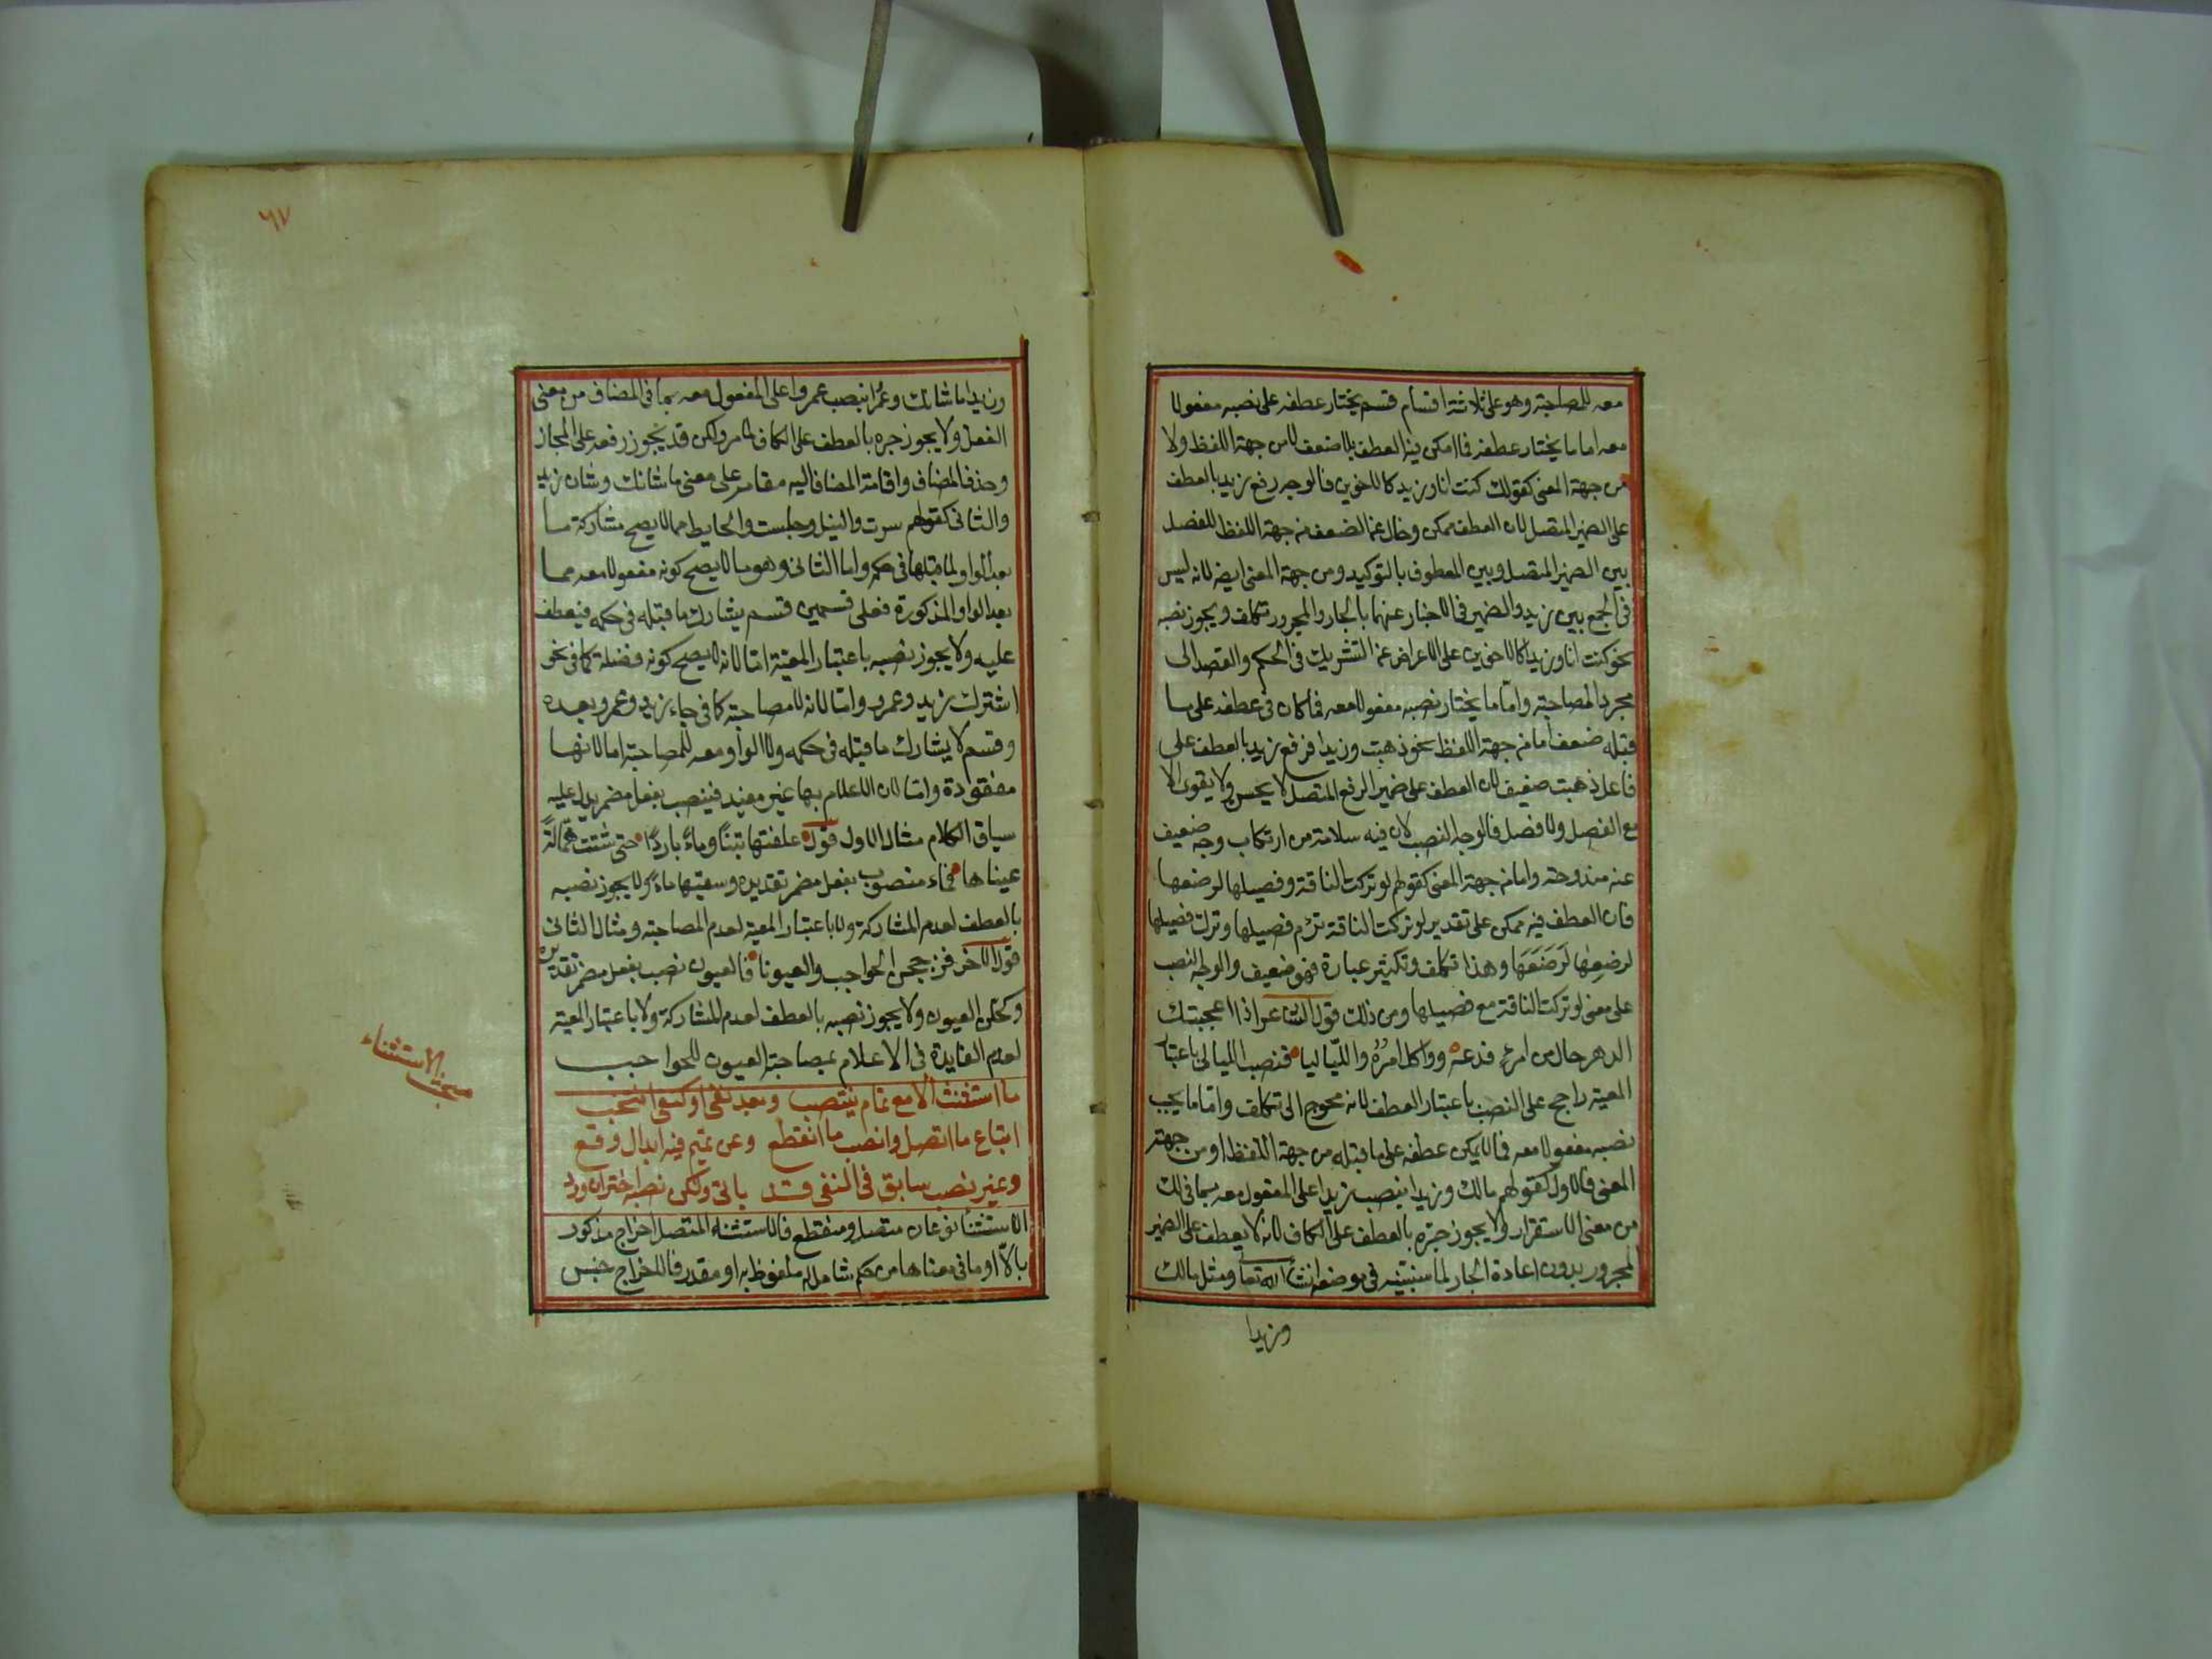 معه للمصاحبة وهو على ثلاثة اقسام قسم يختار عطفه على نصبه مفعولا
معه اما ما يختار عطفه فما امكن فيه العطف بلا ضعف لا من جهة اللفظ ولا
من جهة المعنى كقولك كنت انا وزيد كالاخوين فالوجه رفع زيد بالعطف
على الضمير المتصل لان العطف ممكن وخال عن الضعف من جهة اللفظ للفصل
بين الضمير المتصل وبين المعطوف بالتوكيد ومن جهة المعنى ايضا لانه ليس
في الجمع بين زيد والضمير في الاخبار عنهما بالجار والمجرور تكلف ويجوز نصبه
نحو كنت انا وزيدا كالاخوين على الاعراض عن التشريك في الحكم والقصد الى
مجرد المصاحبة واما ما يختار نصبه مفعولا معه فما كان في عطفه على ما
قبله ضعف اما من جهة اللفظ نحو ذهبت وزيدا فرفع زيد بالعطف على
فاعل ذهبت ضعيف لان العطف على ضمير الرفع المتصل لا يحسن ولا يقوى الا
مع الفصل ولا فصل فالوجه النصب لان فيه سلامة من ارتكاب وجه ضعيف
عنه مندوحة واما من جهة المعنى كقولهم لو تركت الناقة وفصيلها لرضعها
فان العطف فيه ممكن على تقدير لو تركت الناقة ترأم فصيلها وترك فصيلها
لرضعها لرضعها وهذا تكلف وتكثير عبارة فهو ضعيف والوجه النصب
على معنى لو تركت الناقة مع فصيلها ومن ذلك قول الشاعر اذا اعجبتك
الدهر حال من امرئ فدعه وواكل امره واللياليا فنصب الليالي باعتبار
المعية راجح على النصب باعتبار العطف لانه محوج الى تكلف واما ما يجب
نصبه مفعولا معه فما لا يمكن عطفه على ما قبله من جهة اللفظ او من جهة
المعنى فالاول كقولهم مالك وزيدا بنصب زيدا على المفعول معه بما في لك
من معنى الاستقرار ولا يجوز جره بالعطف على الكاف لانه لا يعطف على الضمير
المجرور بدون اعادة الجار لما سنبينه في موضعه انشاء الله تعالى ومثل مالك
وزيدا
٦٧
وزيدا ما شانك وعمرا بنصب عمروا على المفعول معه بما في المضاف من معنى
الفعل ولا يجوز جره بالعطف على الكاف لما مر ولكن قد يجوز رفعه على المجاز
وحذف المضاف واقامة المضاف اليه مقامه على معنى ما شانك وشان زيد
والثاني كقولهم سرت والنيل وجلست والحايط مما لا يصح مشاركة ما
بعد الواو لما قبلها في حكمه واما الثاني وهو ما لا يصح كونه مفعولا معه مما
بعد الواو المذكورة فعلى قسمين قسم يشارك ما قبله في حكمه فيعطف
عليه ولا يجوز نصبه باعتبار المعية اما لانه لا يصح كونه فضلة كما في نحو
اشترك زيد وعمرو واما لانه لا مصاحبة كما في جاء زيد وعمرو بعده
وقسم لا يشارك ما قبله في حكمه ولا الواو معه للمصاحبة اما لانها
مفقودة واما لان الاعلام بها غير مفيد فينصب بفعل مضمر يدل عليه
سياق الكلام مثال الاول قوله علفتها تبنا وماء باردا حتى شتت همالة
عيناها فماء منصوب بفعل مضمر تقديره وسقيتها ماء ولا يجوز نصبه
بالعطف لعدم المشاركة ولا باعتبار المعية لعدم المصاحبة ومثال الثاني
قول الاخر فزججن الحواجب والعيونا فالعيون نصب بفعل مضمر تقديره
وكحلن العيون ولا يجوز نصبه بالعطف لعدم المشاركة ولا باعتبار المعية
لعدم الفايدة في الاعلام بمصاحبة العيون للحواجب
مبحث الاستثناء
ما استثنت الا مع تمام ينتصب وبعد نفي او كنفي انتخب
اتباع ما اتصل وانصب ما انقطع وعن تميم فيه ابدال وقع
وغير نصب سابق في النفي قد ياتي ولكن نصبه اختر ان ورد
الاستثناء نوعان متصل ومنقطع فالاستثناء المتصل اخراج مذكور
بالا او ما في معناها من حكم شامل له ملفوظ به او مقدر فالاخراج جنس